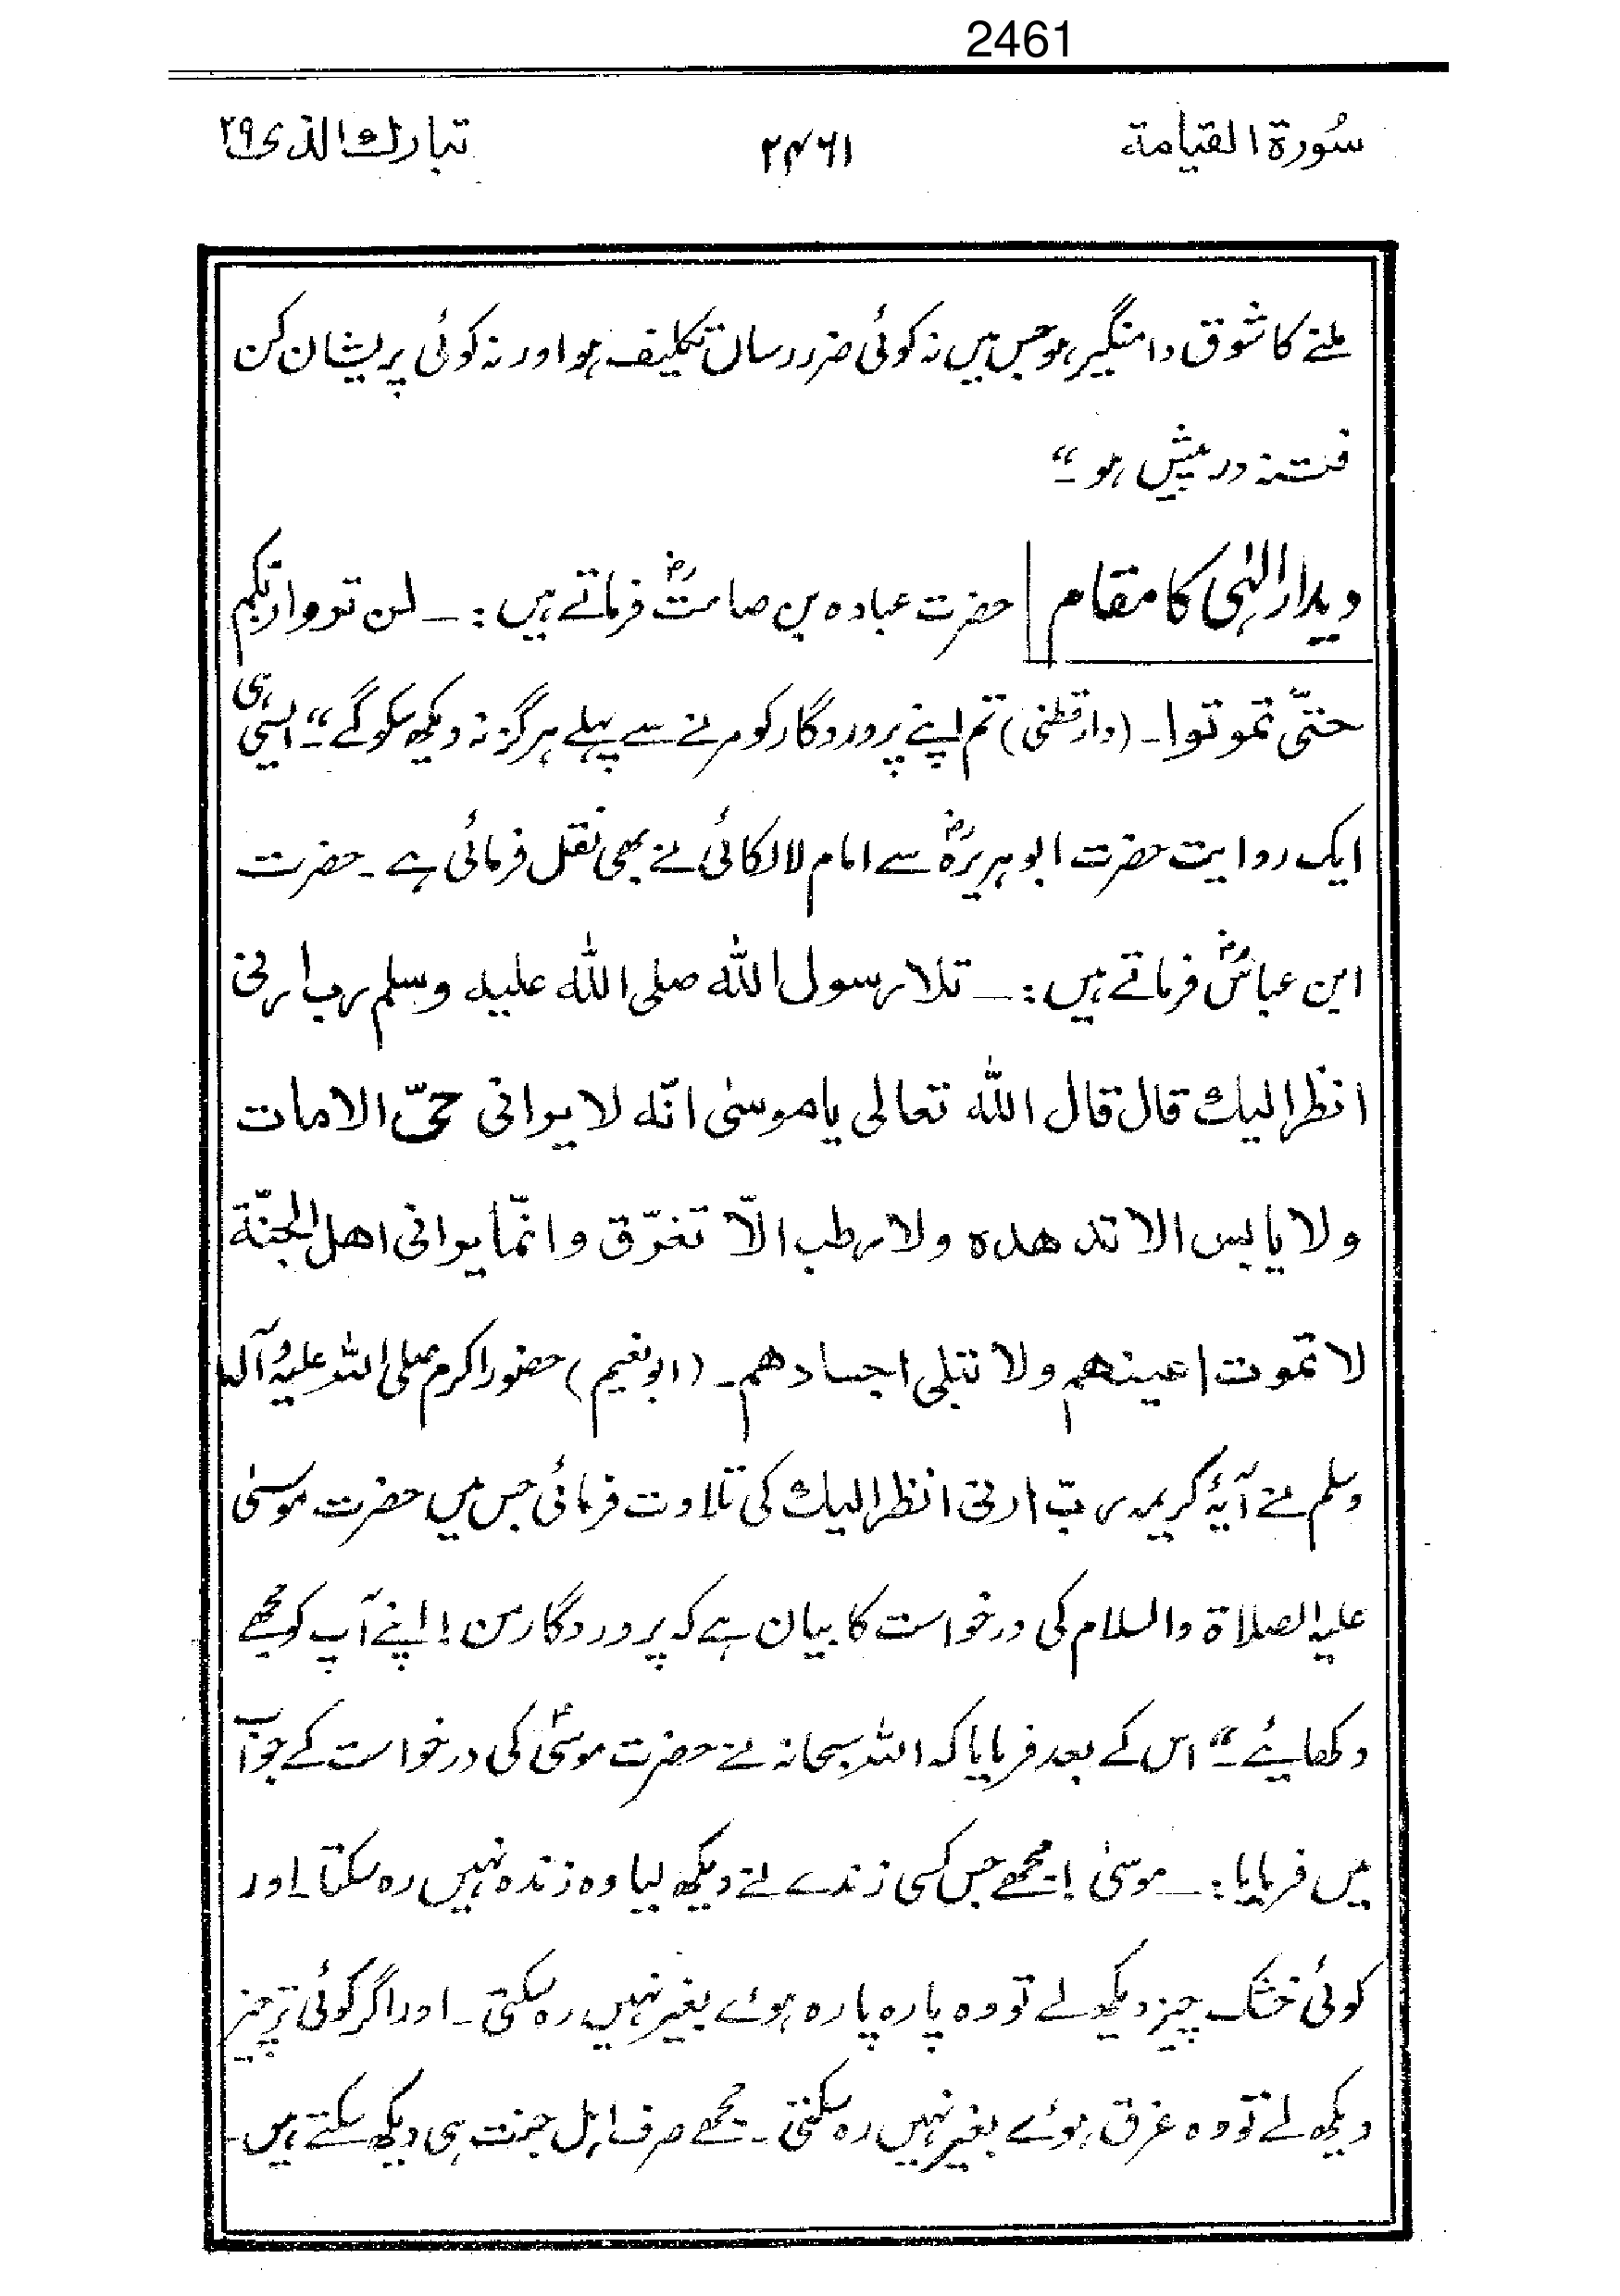 2461
سُورۃ القیامة ۲۴۶۱ تبارك الذی ۲۹
ملنے کا شوق دامنگیر ہو جس میں نہ کوئی ضرر رساں تکلیف ہو اور نہ کوئی پریشان کن
فتنہ درپیش ہو۔“
دیدار الٰہی کا مقام حضرت عبادہ بن صامتؓ فرماتے ہیں:۔ لن تروا ربکم
حتّی تموتوا۔ (دارقطنی) تم اپنے پروردگار کو مرنے سے پہلے ہرگز نہ دیکھ سکو گے۔“ ایسی ہی
ایک روایت حضرت ابوہریرہؓ سے امام لالکائی نے بھی نقل فرمائی ہے۔ حضرت
ابن عباسؓ فرماتے ہیں:۔ تلا رسول اللہ صلی اللہ علیہ وسلم رب ارنی
انظر الیك قال قال اللہ تعالی یا موسیٰ انّه لا یرانی حیّ الا مات
ولا یابس الا تدهده ولا رطب الّا تغرّق وانّما یرانی اهل الجنّة
لا تموت اعینهم ولا تبلی اجسادهم۔ (ابونعیم) حضور اکرم صلی اللہ علیہ وآلہ
وسلم نے آیۂ کریمہ ربّ ارنی انظر الیك کی تلاوت فرمائی جس میں حضرت موسیٰ
علیہ الصلاۃ والسلام کی درخواست کا بیان ہے کہ پروردگار من! اپنے آپ کو مجھے
دکھایئے۔“ اس کے بعد فرمایا کہ اللہ سبحانہ نے حضرت موسیٰؑ کی درخواست کے جواب
میں فرمایا:۔ موسیٰ! مجھے جس کسی زندے نے دیکھ لیا وہ زندہ نہیں رہ سکتا۔ اور
کوئی خشک چیز دیکھ لے تو وہ پارہ پارہ ہوئے بغیر نہیں رہ سکتی۔ اور اگر کوئی تر چیز
دیکھ لے تو وہ غرق ہوئے بغیر نہیں رہ سکتی۔ مجھے صرف اہل جنت ہی دیکھ سکتے ہیں۔